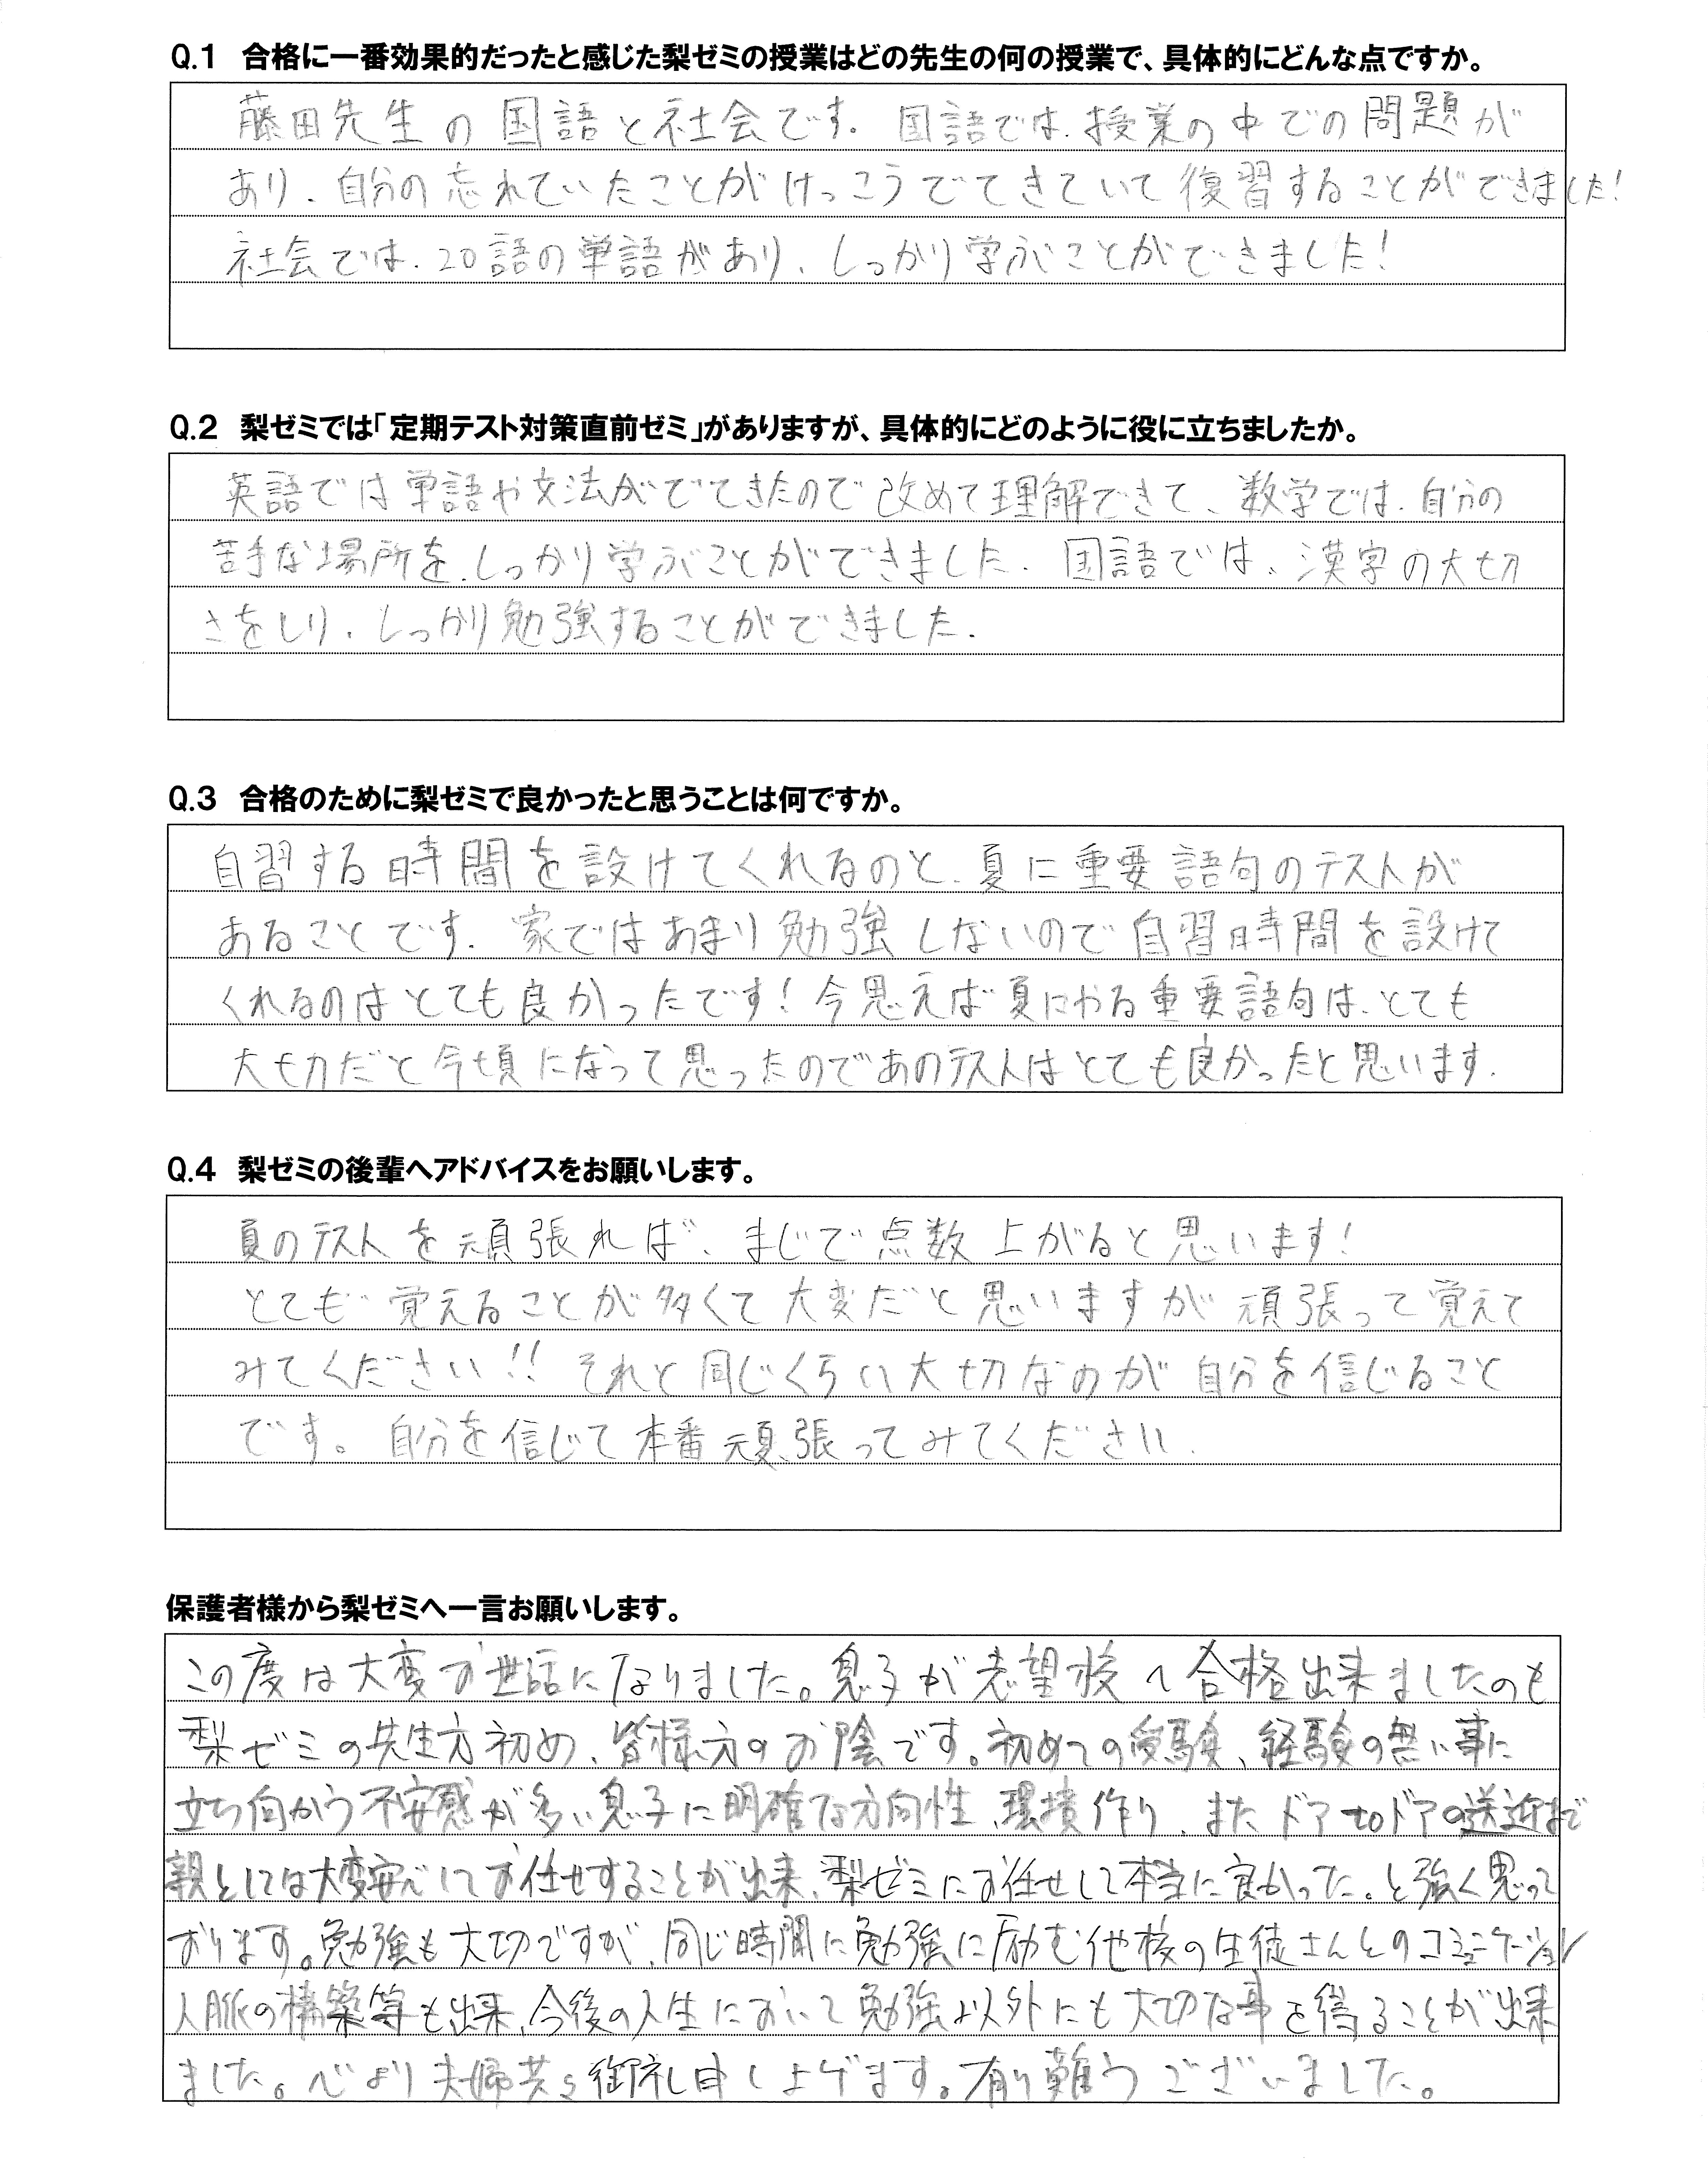 Q.1 合格に一番効果的だったと感じた梨ゼミの授業はどの先生の何の授業で、具体的にどんな点ですか。
藤田先生の国語と社会です. 国語では、授業の中での問題が
あり、自分の忘れていたことがけっこうでてきていて復習することができました!
社会では、20語の単語があり、しっかり学ぶことができました!
Q.2 梨ゼミでは「定期テスト対策直前ゼミ」がありますが、具体的にどのように役に立ちましたか。
英語では単語や文法がでてきたので改めて理解できて、数学では、自分の
苦手な場所を、しっかり学ぶことができました. 国語では、漢字の大切
さをしり、しっかり勉強することができました.
Q.3 合格のために梨ゼミで良かったと思うことは何ですか。
自習する時間を設けてくれるのと、夏に重要語句のテストが
あることです. 家ではあまり勉強しないので自習時間を設けて
くれるのはとても良かったです! 今思えば夏にやる重要語句は、とても
大切だと今頃になって思ったのであのテストはとても良かったと思います.
Q.4 梨ゼミの後輩へアドバイスをお願いします。
夏のテストを頑張れば、まじで点数上がると思います!
とても覚えることが多くて大変だと思いますが頑張って覚えて
みてください!! それと同じくらい大切なのが自分を信じること
です。自分を信じて本番頑張ってみてください.
保護者様から梨ゼミへ一言お願いします。
この度は大変お世話になりました。息子が志望校へ合格出来ましたのも
梨ゼミの先生方初め、皆様方のお陰です。初めての受験、経験の無い事に
立ち向かう不安感が多い息子に明確な方向性、環境作り、またドアtoドアの送迎まで
親としては大変安心してお任せすることが出来、梨ゼミにお任せして本当に良かった。と強く思って
おります。勉強も大切ですが、同じ時間に勉強に励む他校の生徒さんとのコミュニケーション
人脈の構築等も出来、今後の人生において勉強以外にも大切な事を得ることが出来
ました。心より夫婦共々御礼申し上げます。有り難うございました。